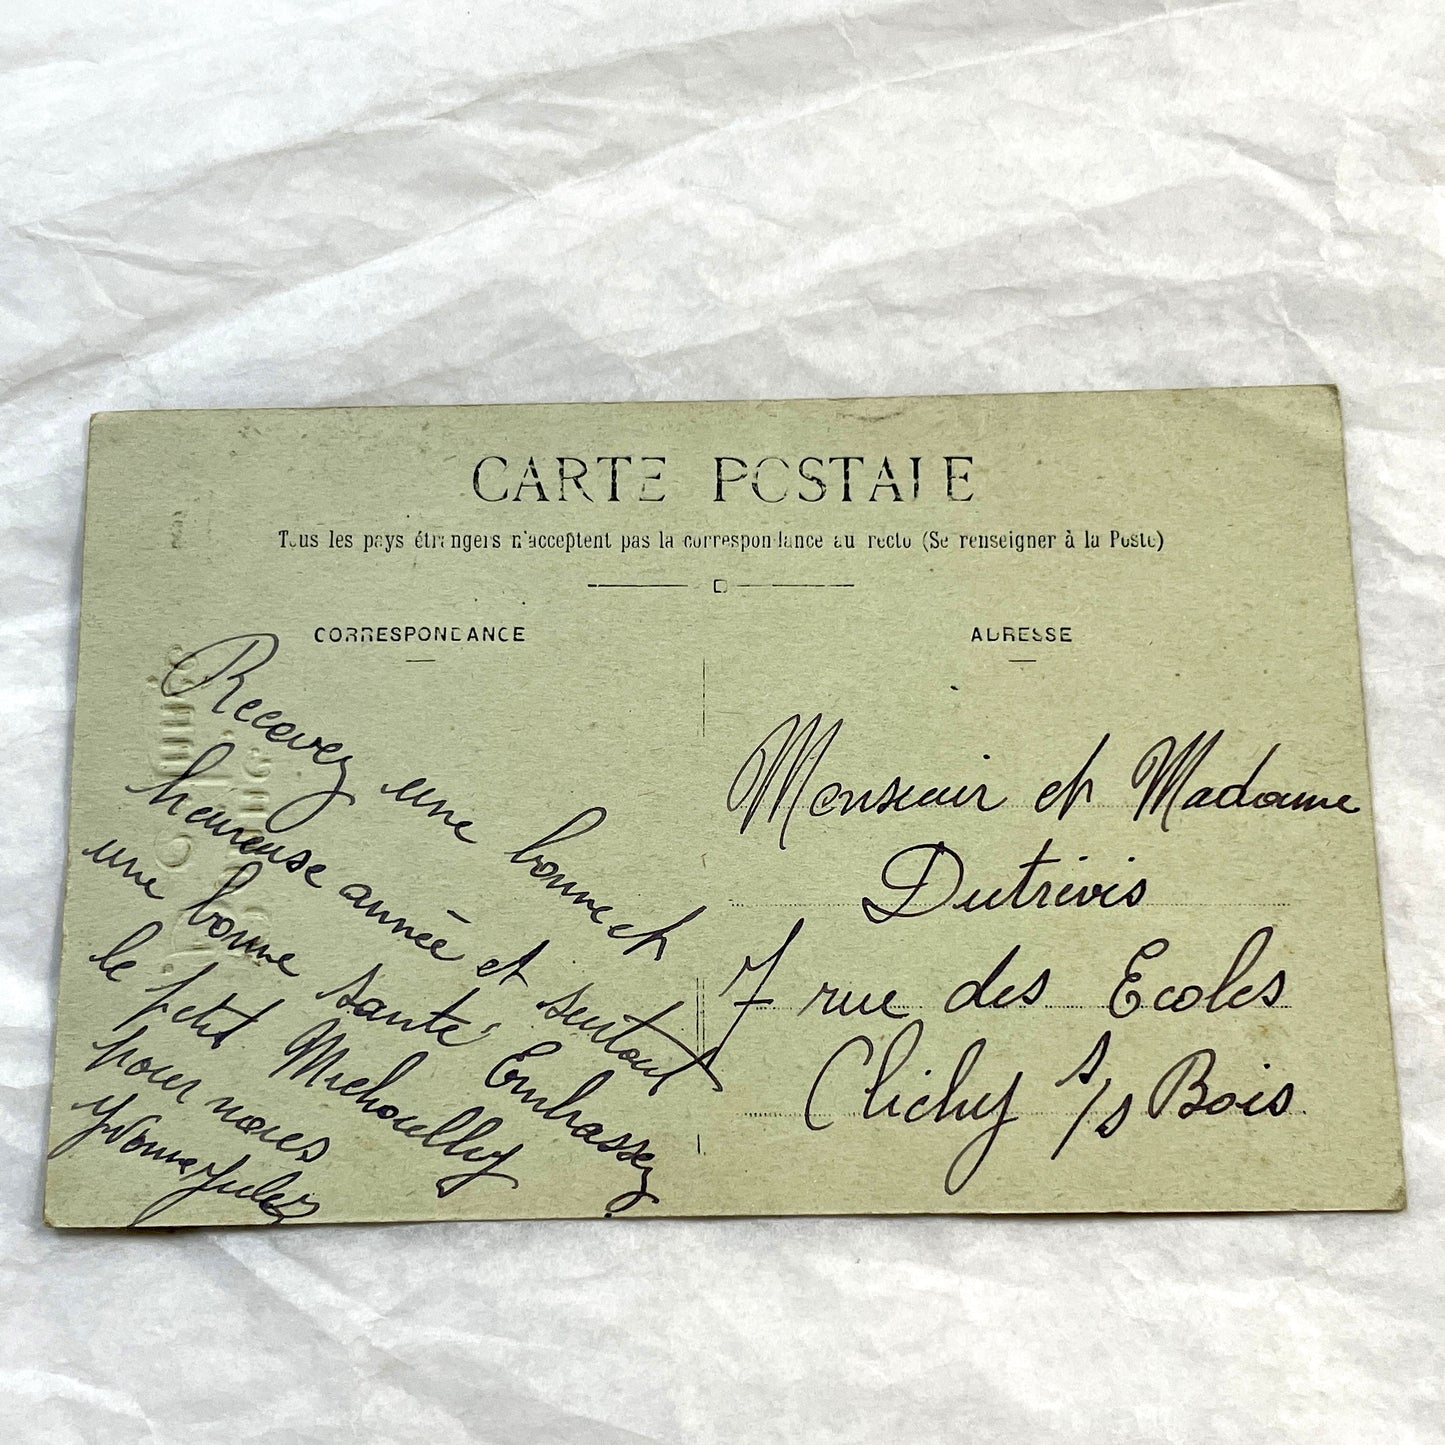 CARTE POSTALE
Tous les pays étrangers n'acceptent pas la correspondance au recto (Se renseigner à la Poste)
CORRESPONDANCE
Recevez une bonne et
heureuse année et surtout
une bonne santé. Embrassez
le petit Michoully
pour nous
Yvonne Jules
ADRESSE
Monsieur et Madame
Dutrivis
7 rue des Ecoles
Clichy s/s Bois.